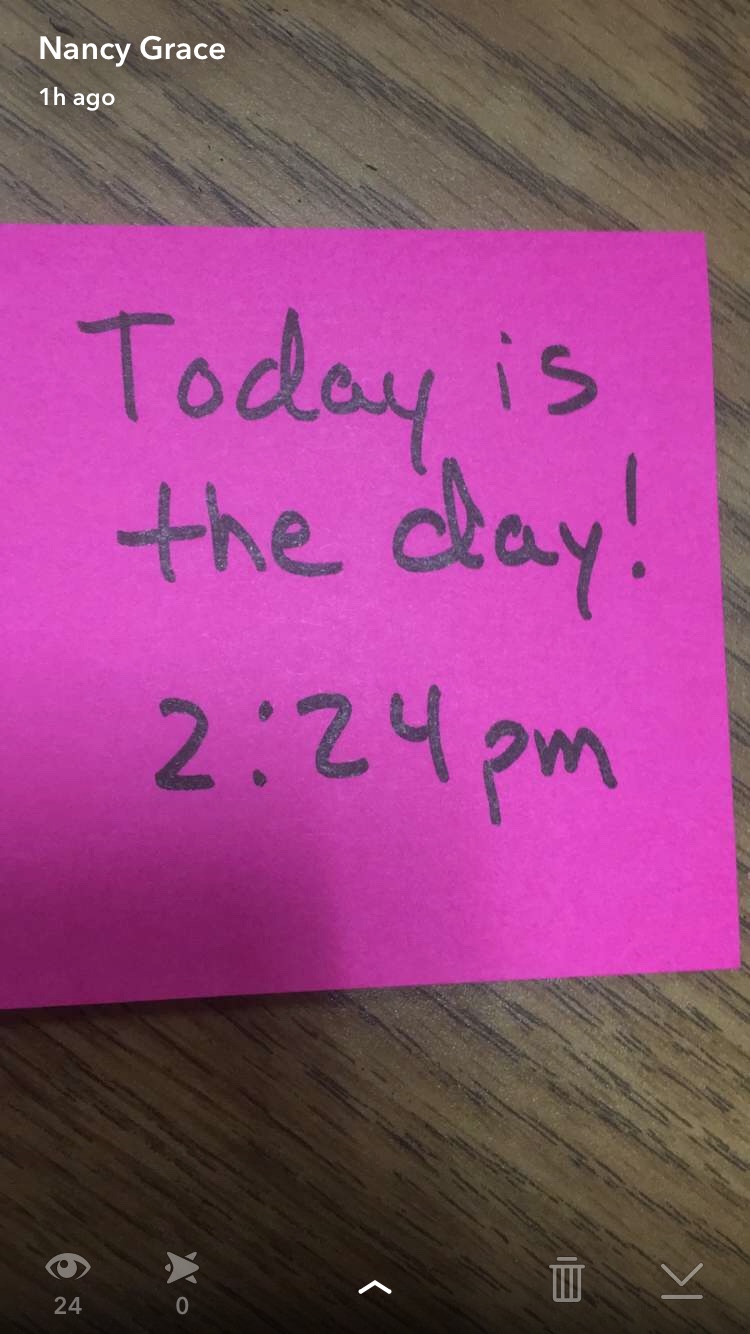 Nancy Grace
1h ago
Today is
the day!
2:24pm
24
0